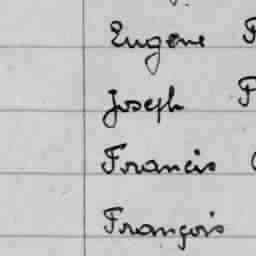 Eugène F
Joseph F
Francis
François